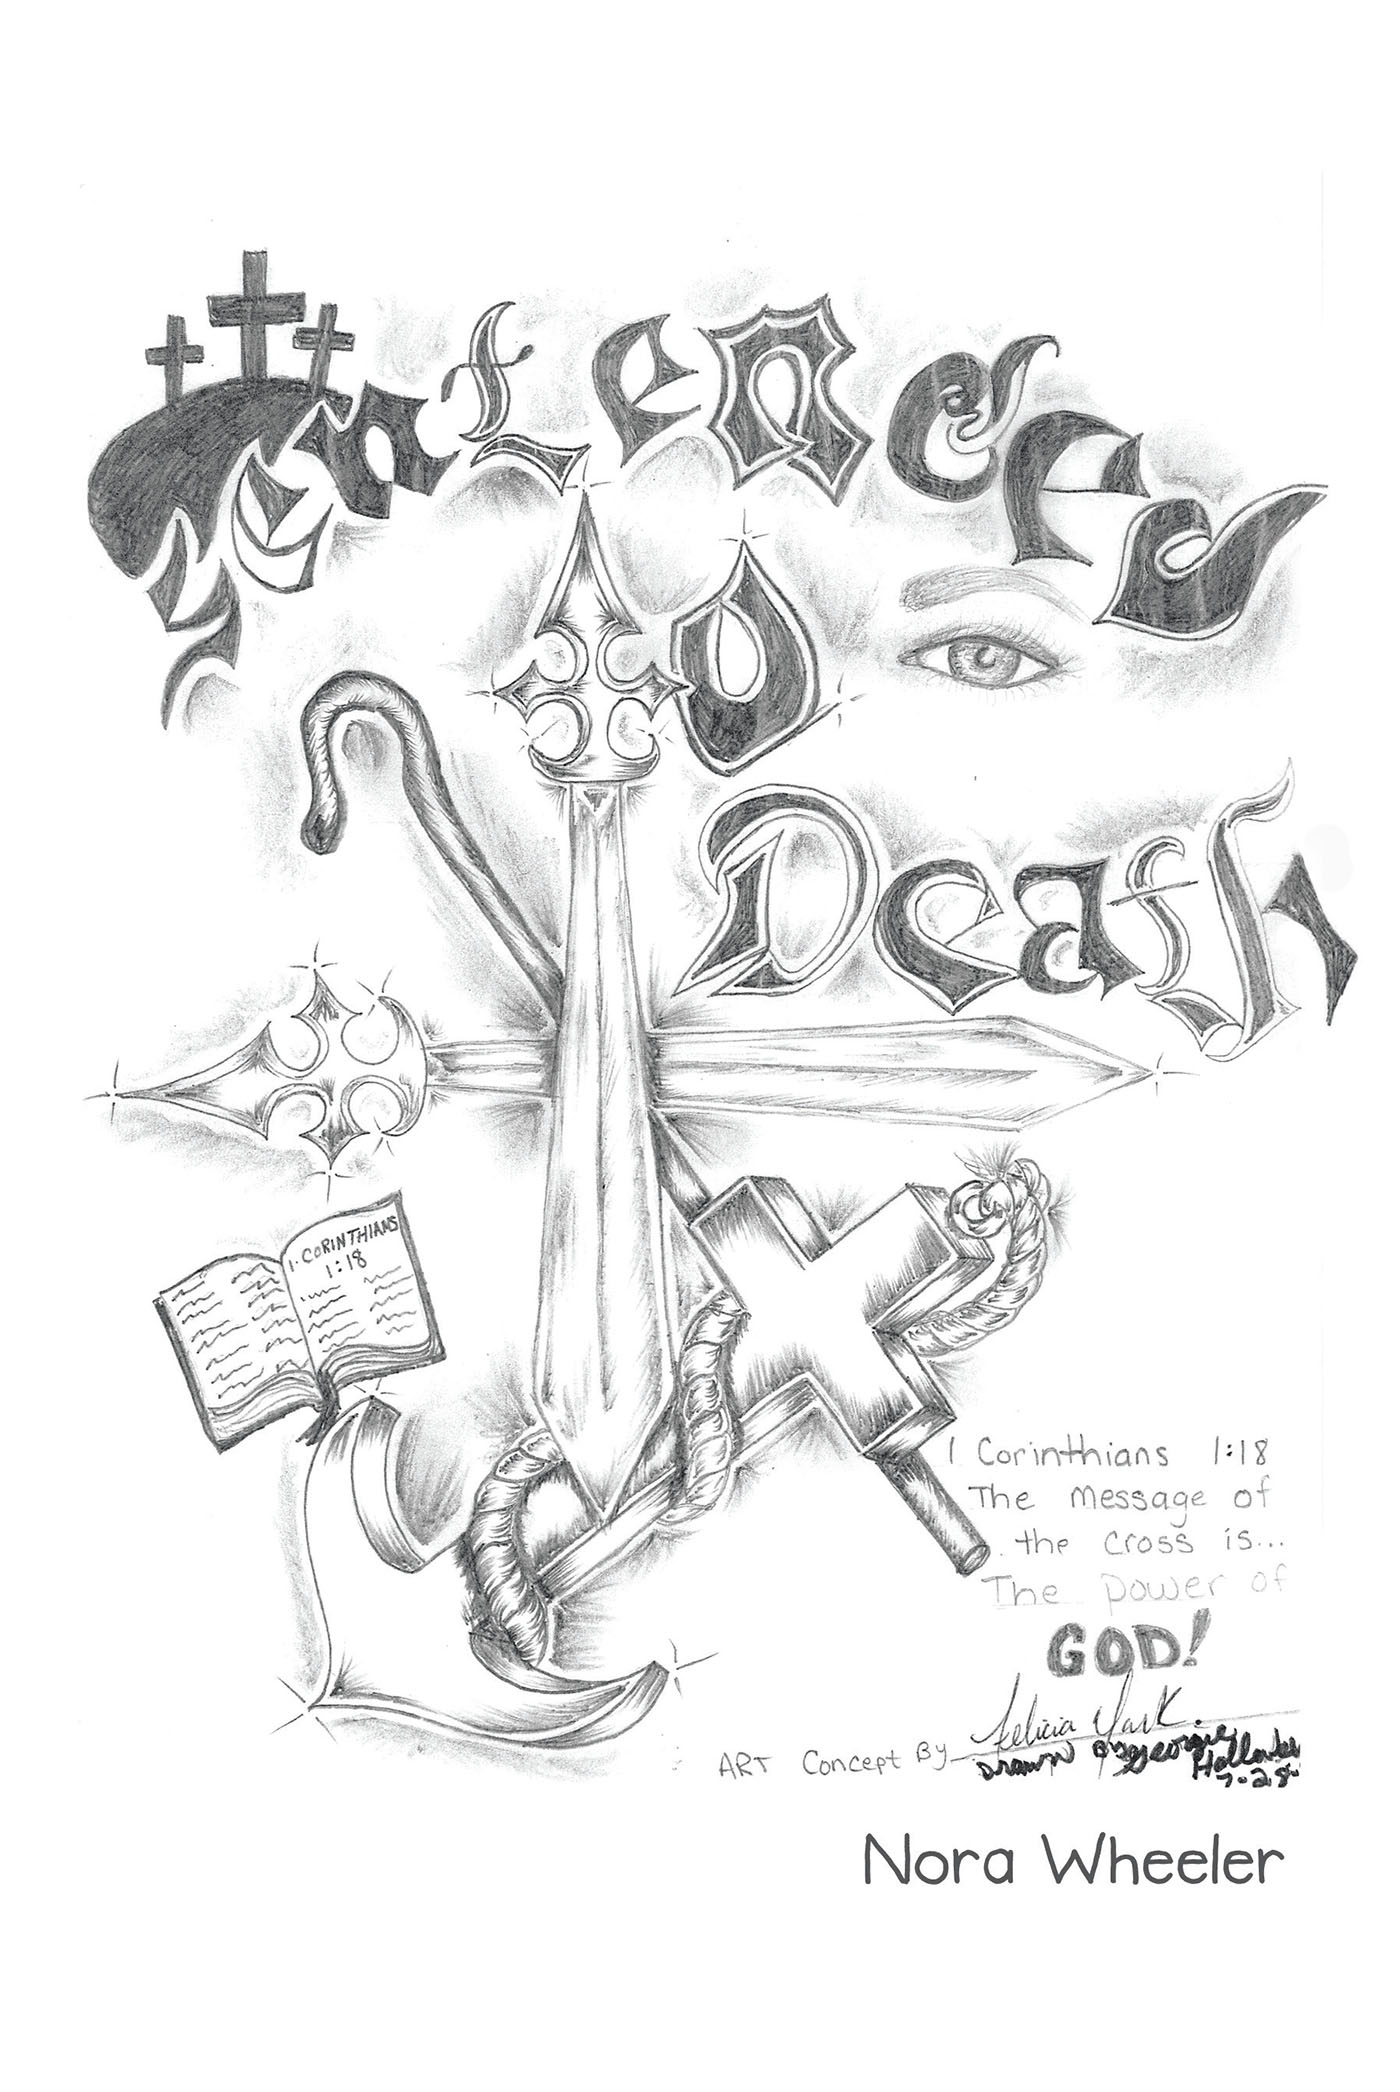 Sentenced
To
Death
1 CORINTHIANS
1:18
1 Corinthians 1:18
The Message of
the cross is...
The power of
GOD!
ART Concept By Felicia
Drawn By Georgie
7-28-
Nora Wheeler